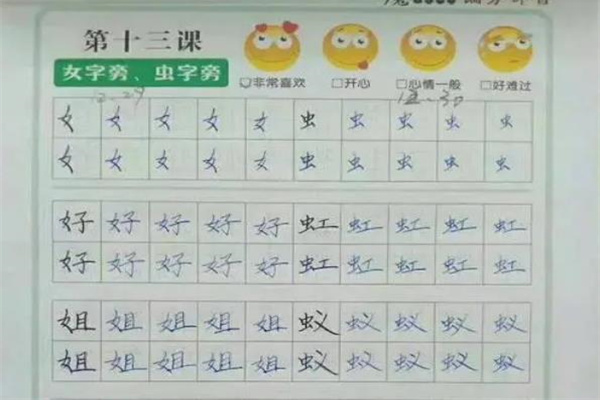 第十三课
女字旁、虫字旁
非常喜欢 开心 心情一般 好难过
12.29 12.30
女 女 女 女 女 虫 虫 虫 虫 虫
女 女 女 女 女 虫 虫 虫 虫 虫
好 好 好 好 好 虹 虹 虹 虹 虹
好 好 好 好 好 虹 虹 虹 虹 虹
姐 姐 姐 姐 姐 蚁 蚁 蚁 蚁 蚁
姐 姐 姐 姐 姐 蚁 蚁 蚁 蚁 蚁